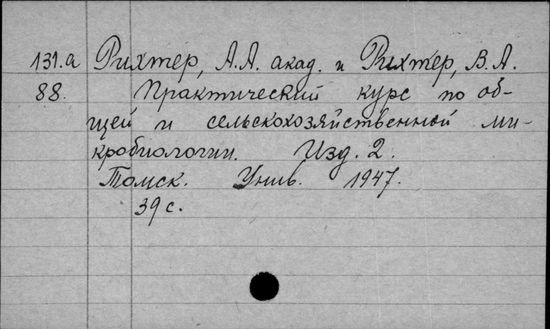 131.а Рихтер, А.А. акад. и Рихтер, В.А.
88. Практический курс по об-
щей и сельскохозяйственной ми-
кробиологии. Изд. 2.
Томск. Унив. 1947.
39 с.